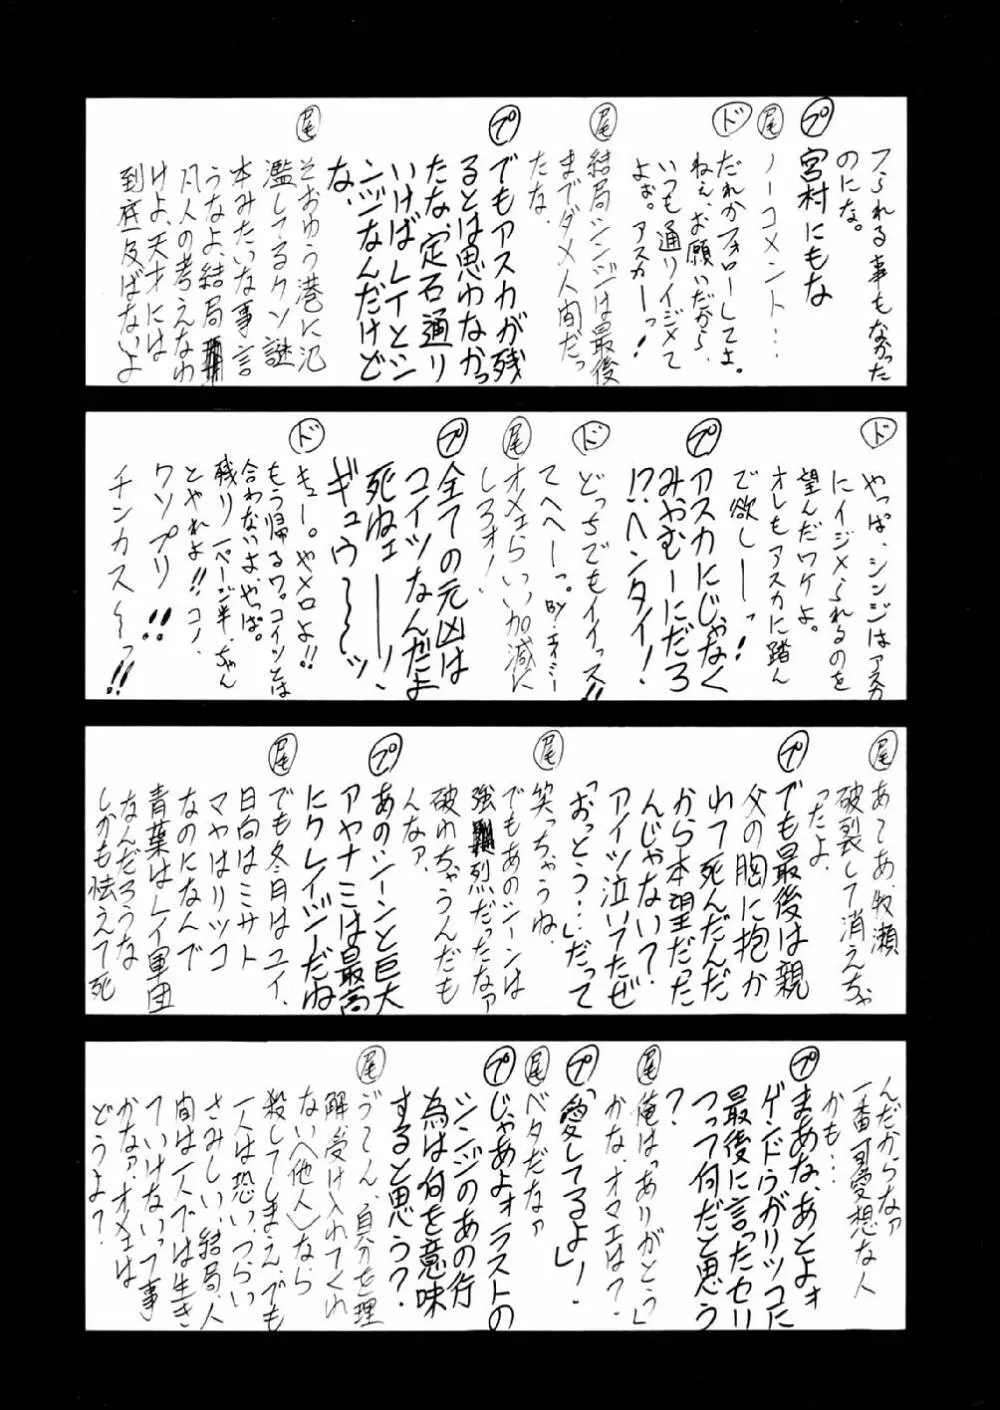 フられる事もなかった
のにな。
プ 宮村にもな
尾 ノーコメント・・・
ド だれかフォローしてよ。
ねぇ、お願いだから、
いつも通りイジメて
よぉ。アスカーっ!
尾 結局シンジは最後
までダメ人間だっ
たな。
プ でもアスカが残
るとは思わなかっ
たな、定石通り
いけばレイとシ
ンジなんだけど
な、
尾 そおゆう港に氾
濫してるクソ謎
本みたいな事言
うなよ、結局
凡人の考えなわ
けよ、天才には
到底及ばないよ
ド やっぱ、シンジはアスカ
にイジメられるのを
望んだワケよ。
オレもアスカに踏ん
で欲しーーっ!
プ アスカにじゃなく
みやむーにだろ
!?ヘンタイ!
ド どっちでもイイっス!!
てへへーっ。
尾 オメェらいい加減に
しろォ!
プ 全ての元凶は
コイツなんだよ
死ねェーー!、
ギュウ〜〜〜ッ
ド キュー。やメロよ!!
もう帰るワ。コイツとは
合わないよ、やっぱ。
残り一ページ半、ちゃん
とやれよ!!コノ、
クソプリ!!
チンカス〜〜っ!!
尾 あてあ、牧瀬
破裂して消えちゃ
ったよ
プ でも最後は親
父の胸に抱か
れて死んだんだ
から本望だった
んじゃない?
アイツ泣いてたぜ
「おっとう・・・」だって
尾 笑っちゃうね、
でもあのシーンは
強烈だったなァ
破れちゃうんだも
んなァ、
プ あのシーンと巨大
アヤナミは最高
にクレイジーだね
尾 でも冬月はユイ、
日向はミサト
マヤはリツコ
なのになんで
青葉はレイ軍団
なんだろうな
しかも怯えて死
んだからなァ
一番可愛想な人
かも・・・
プ まあな、あとよォ
ゲンドウがリツコに
最後に言ったセリ
フって何だと思う
?
尾 俺は「ありがとう」
かな、オマエは?
プ 「愛してるよ」!
尾 ベタだなァ
プ じゃあよォラストの
シンジのあの行
為は何を意味
すると思う?
尾 うてん、自分を理
解受け入れてくれ
ない〈他人〉なら
殺してしまえ、でも
一人は恐い、つらい
さみしい、結局、人
間は一人では生き
ていけないって事
かなァ、オメエは
どうよ?